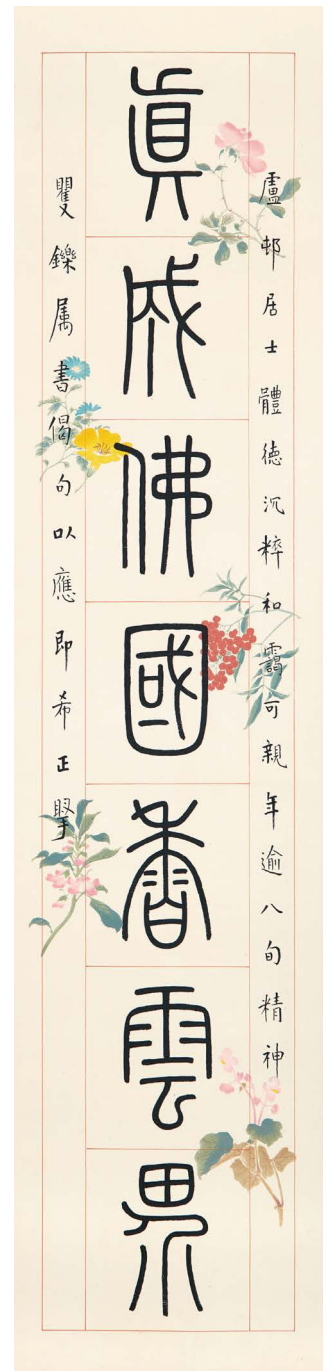 盧邨居士體德沉粹和靄可親年逾八旬精神
眞成佛國香雲界
矍鑠属書偈句㕥應即希正掔